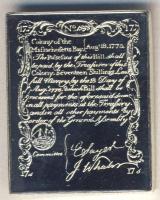 17s 17s
Colony of the
Massachusetts Bay Aug. 18. 1775
The Possessor of this Bill shall
be paid by the Treasurer of this
Colony. Seventeen Shillings. Law
full Money by the 18. 
Aug. 1778. which Bill shall be
received for the aforesaid sum
in all payments at the Treasury
and in all other payments by
order of the General Assembly
Committee
J Wheeler
17s 17s